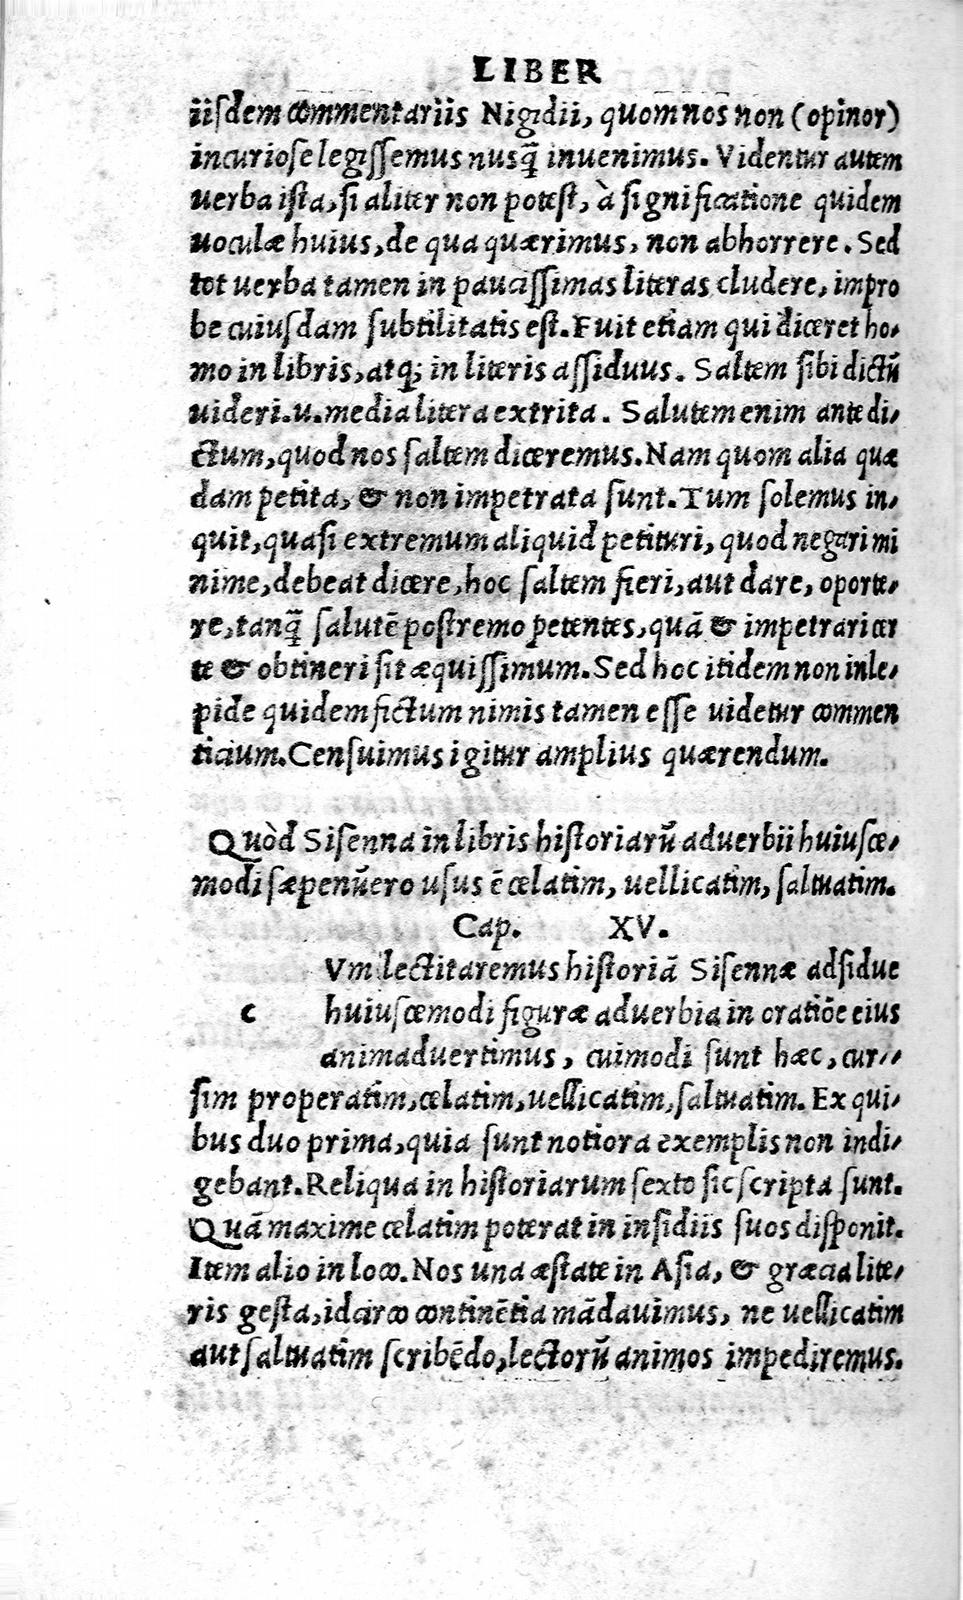 LIBER
iisdem commentariis Nigidii, quom nos non (opinor)
incuriose legissemus nusq̃ inuenimus. Videntur autem
uerba ista, si aliter non potest, à significatione quidem
uoculæ huius, de qua quærimus, non abhorrere. Sed
tot uerba tamen in paucissimas literas cludere, impro
be cuiusdam subtilitatis est. Fuit etiam qui diceret ho-
mo in libris, atq; in literis assiduus. Saltem sibi dictũ
uideri .u. media litera extrita. Salutem enim ante di-
ctum, quod nos saltem diceremus. Nam quom alia quæ
dam petita, & non impetrata sunt. Tum solemus in-
quit, quasi extremum aliquid petituri, quod negari mi
nime, debeat dicere, hoc saltem fieri, aut dare, oporte-
re, tanq̃ salutē postremo petentes, quā & impetrari cer
te & obtineri sit æquissimum. Sed hoc itidem non inle-
pide quidem fictum nimis tamen esse uidetur commen
ticium. Censuimus igitur amplius quærendum.
Quòd Sisenna in libris historiarũ aduerbii huiusce-
modi sæpenũero usus ē celatim, uellicatim, saltuatim.
Cap. XV.
Vm lectitaremus historiā Sisennæ adsidue
c huiuscemodi figuræ aduerbia in oratiōe eius
animaduertimus, cuimodi sunt hæc, cur-
sim properatim, celatim, uellicatim, saltuatim. Ex qui-
bus duo prima, quia sunt notiora exemplis non indi-
gebant. Reliqua in historiarum sexto sic scripta sunt.
Quā maxime celatim poterat in insidiis suos disponit.
Item alio in loco. Nos una æstate in Asia, & græcia lite-
ris gesta, idcirco continētia mādauimus, ne uellicatim
aut saltuatim scribēdo, lectorũ animos impediremus.